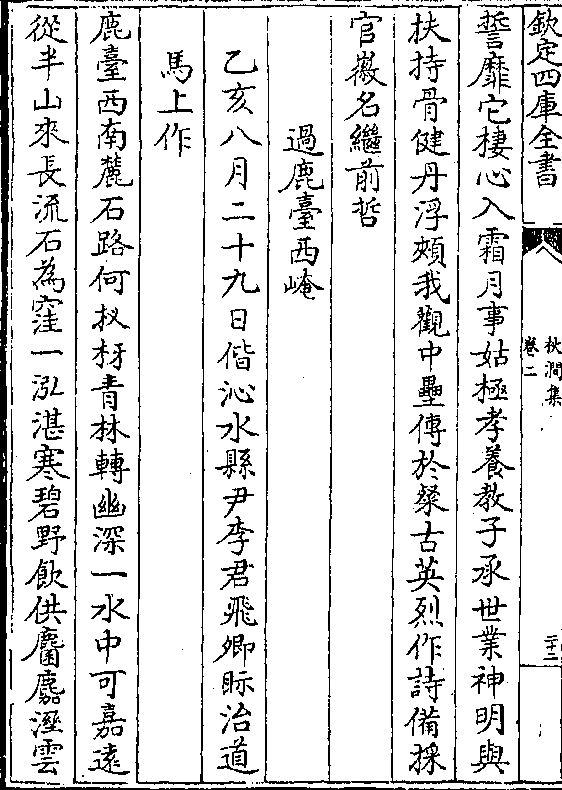 欽定四庫全書
秋澗集
卷二
二十二
誓靡它棲心入霜月事姑極孝養教子承世業神明與
扶持骨健丹浮頰我觀中壘傳於粲古英烈作詩備採
官徽名繼前哲
過鹿臺西崦
乙亥八月二十九日偕沁水縣尹李君飛卿眎治道
馬上作
鹿臺西南麓石路何杈枒青林轉幽深一水中可嘉遠
從半山來長流石為窪一泓湛寒碧野飲供麕麚溼雲